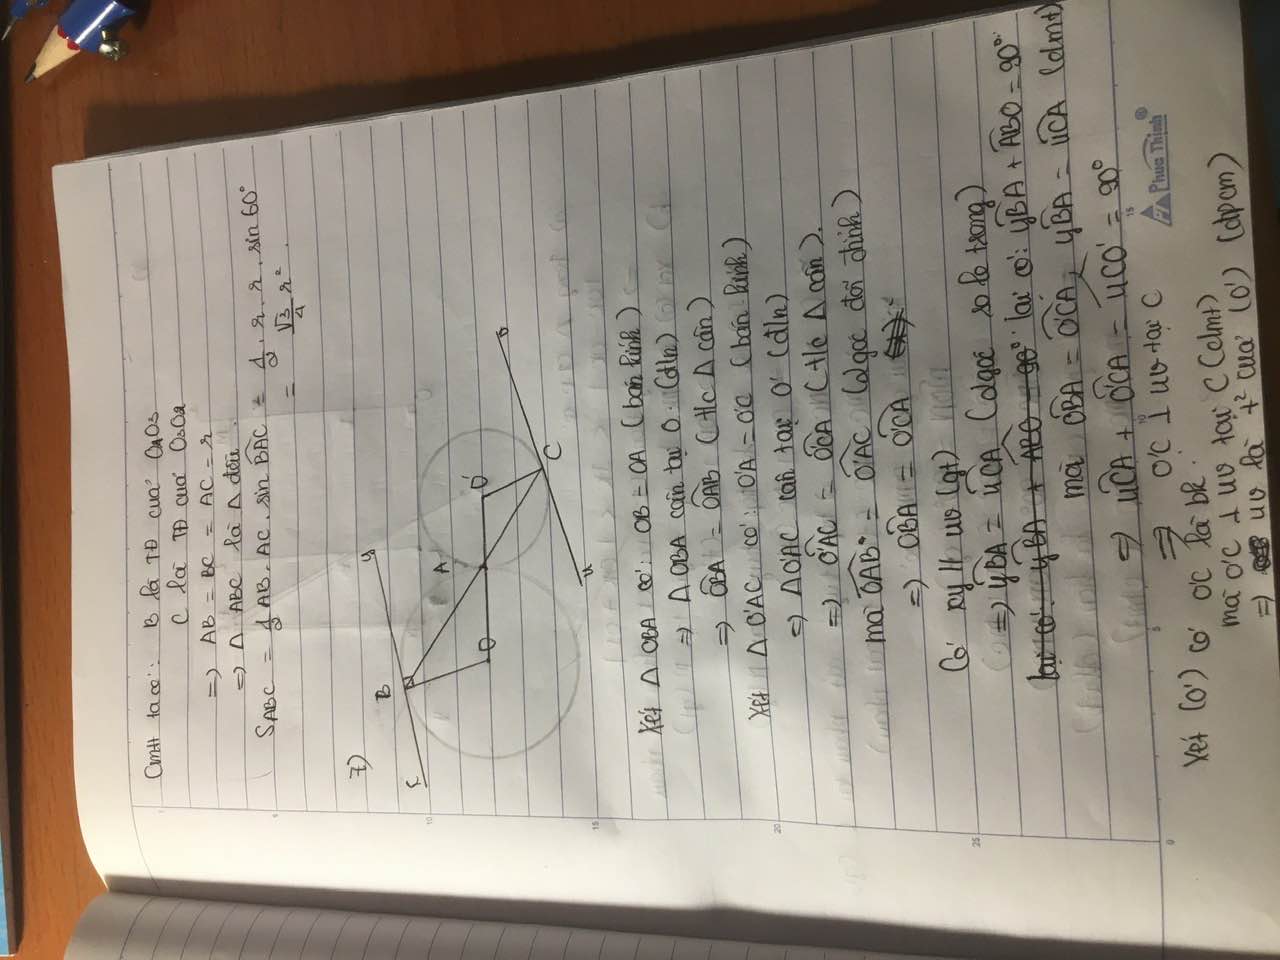 CMTT ta có: B là TĐ của O₁O₃
C là TĐ của O₂O₃
=> AB = BC = AC = r
=> Δ ABC là Δ đều
S_ABC = 1/2 AB. AC. sin BAC = 1/2 . r. r. sin 60°
= √3/4 r²
7)
x B y
A
O O'
u C v
Xét Δ OBA có: OB = OA (bán kính)
=> Δ OBA cân tại O. (đ/n)
=> OBA = OAB (t/c Δ cân)
Xét Δ O'AC có: O'A = O'C (bán kính)
=> Δ O'AC cân tại O' (đ/n)
=> O'AC = O'CA (t/c Δ cân).
mà OAB = O'AC (2góc đối đỉnh)
=> OBA = O'CA
Có xy // uv (gt)
=> yBA = uCA (2góc so le trong)
lại có: yBA + ABO = 90° lại có: yBA + ABO = 90°
mà OBA = O'CA, yBA = uCA (cmt)
=> uCA + O'CA = uCO' = 90°
=> O'C ⊥ uv tại C
Phuc Thịnh®
Xét (O') có O'C là bk.
mà O'C ⊥ uv tại C (cmt)
=> uv là t² của (O') (đpcm)